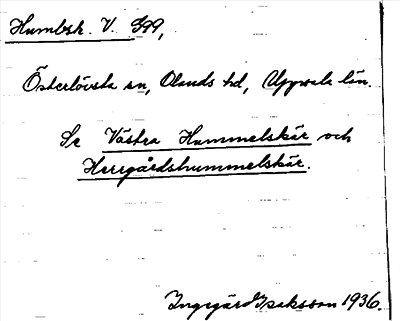 Humbsk. V. S99,
Österlövsta sn, Olands hd, Uppsala län.
Se Västra Hummelskär och
Herrgårdshummelskär.
Ingegärd Isaksson 1936.